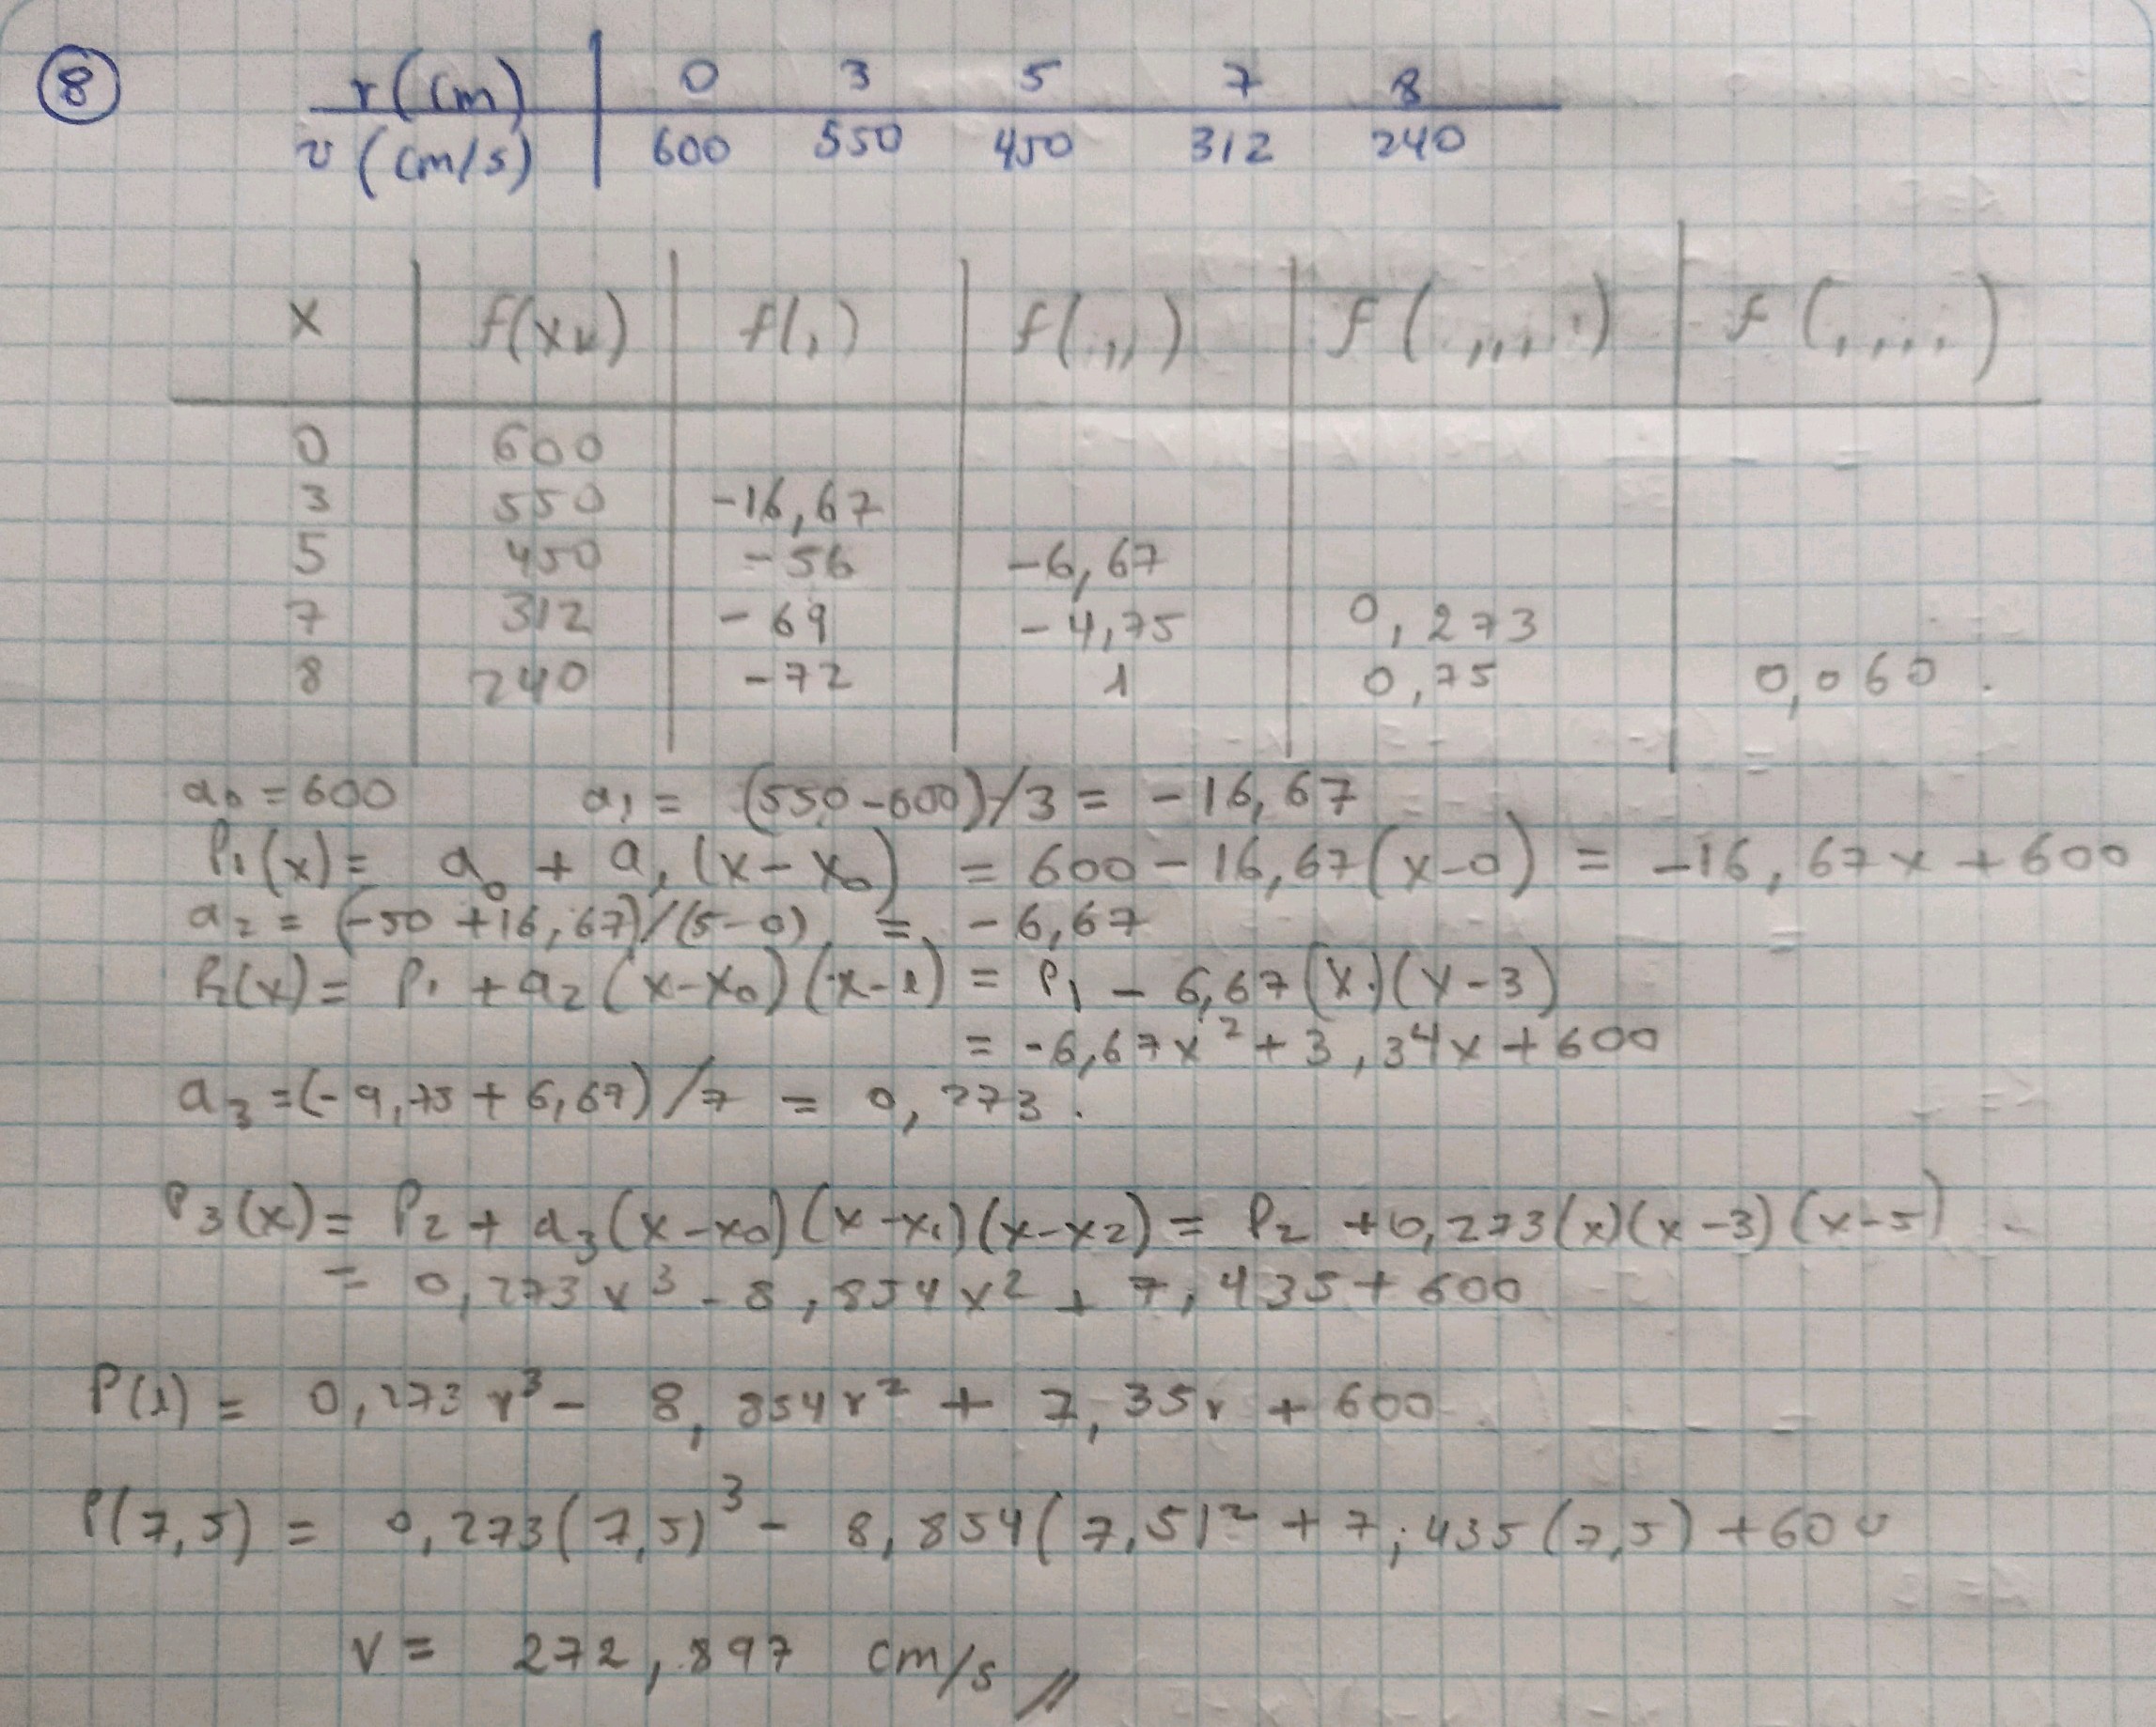 8 r(cm) 0 3 5 7 8
v(cm/s) 600 550 450 312 240
x f(xk) f(,) f(,,,) f(,,,,.) f(,,,,.)
0 600
3 550 -16,67
5 450 -56 -6,67
7 312 -69 -4,75 0,273
8 240 -72 1 0,75 0,060.
a0 = 600 a1 = (550-600)/3 = -16,67
P1(x) = a0 + a1(x-x0) = 600 - 16,67(x-0) = -16,67x + 600
a2 = (-50 + 16,67)/(5-0) = -6,67
P2(x) = P1 + a2(x-x0)(x-1) = P1 - 6,67(x.)(x-3)
= -6,67x² + 3,34x + 600
a3 = (-9,75 + 6,67)/7 = 0,273.
P3(x) = P2 + a3(x-x0)(x-x1)(x-x2) = P2 + 0,273(x)(x-3)(x-5)
= 0,273x³ - 8,854x² + 7,435 + 600
P(1) = 0,273r³ - 8,854r² + 7,35r + 600
P(7,5) = 0,273(7,5)³ - 8,854(7,5)² + 7,435(7,5) + 600
v = 272,897 cm/s //